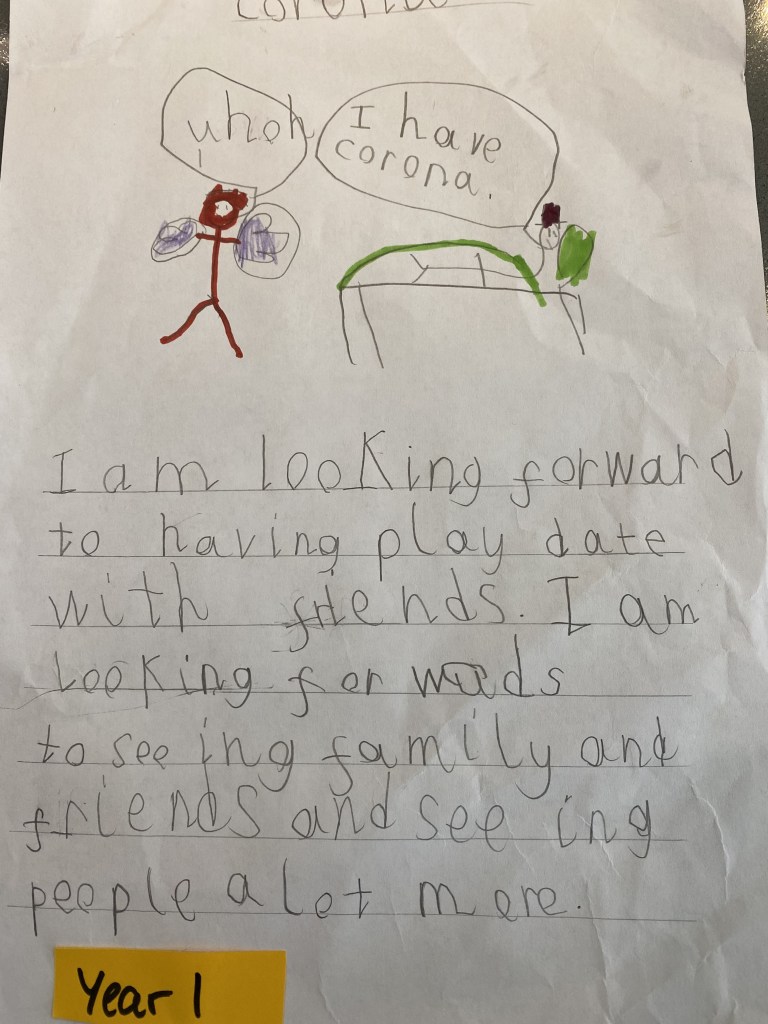 uhoh
I have
corona.
I am looking forward
to having play date
with friends. I am
looking for wads
to see ing family and
friends and see ing
people a lot more.
Year 1